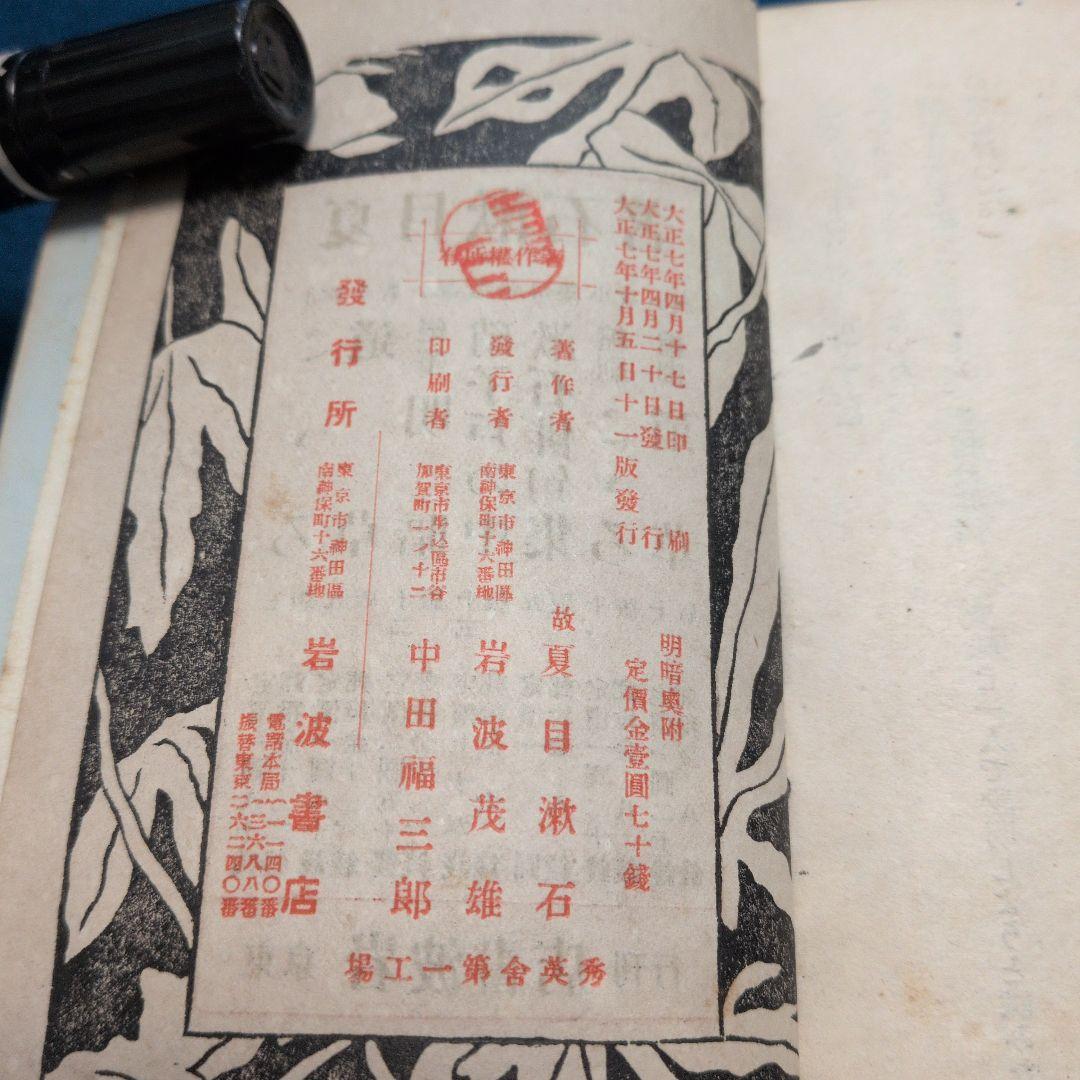 大正七年四月十七日印刷
大正七年四月二十日發行
大正七年十月五日十一版發行
明暗奥附
定價金壹圓七十錢
作權所有
著作者
故夏目漱石
發行者
東京市神田區
南神保町十六番地
岩波茂雄
印刷者
東京市牛込區市谷
加賀町一ノ十二
中田福三郎
發行所
東京市神田區
南神保町十六番地
岩波書店
電話本局
一一四〇番
一三六八八番
振替東京二六二四〇番
秀英舍第一工場